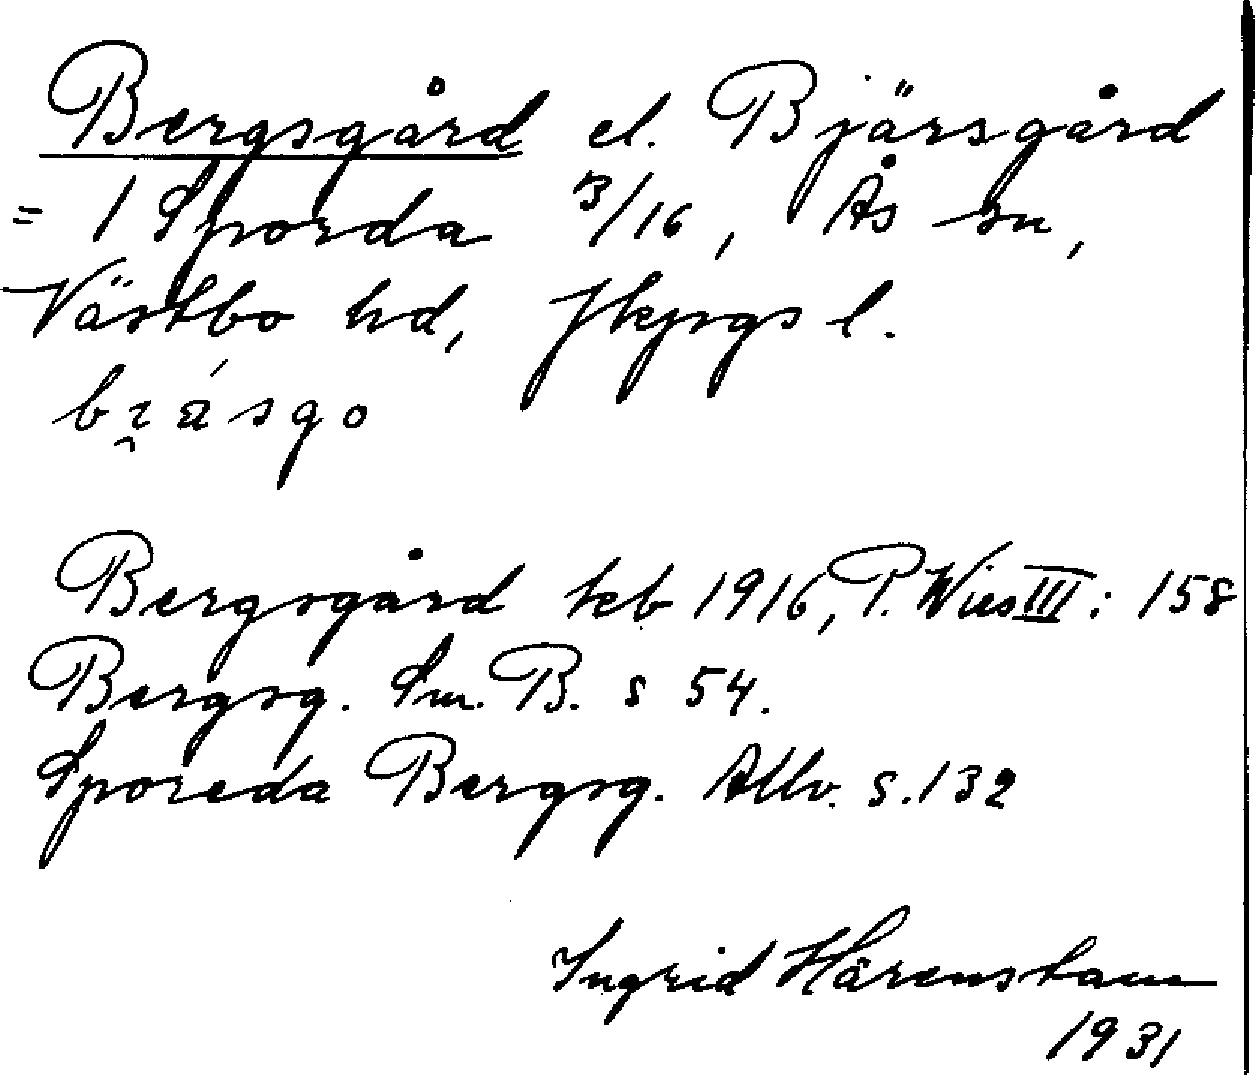 Bergsgård el. Bjärsgård
= 1 Sporda 3/16, Ås sn,
Västbo hd, Jkpgs l.
bi̯ásgo
Bergsgård teb 1916, P. Wies III: 158
Bergsg. Sm. B. s 54.
Sporeda Bergsg. Allv. s. 132
Ingrid Hårenstam
1931